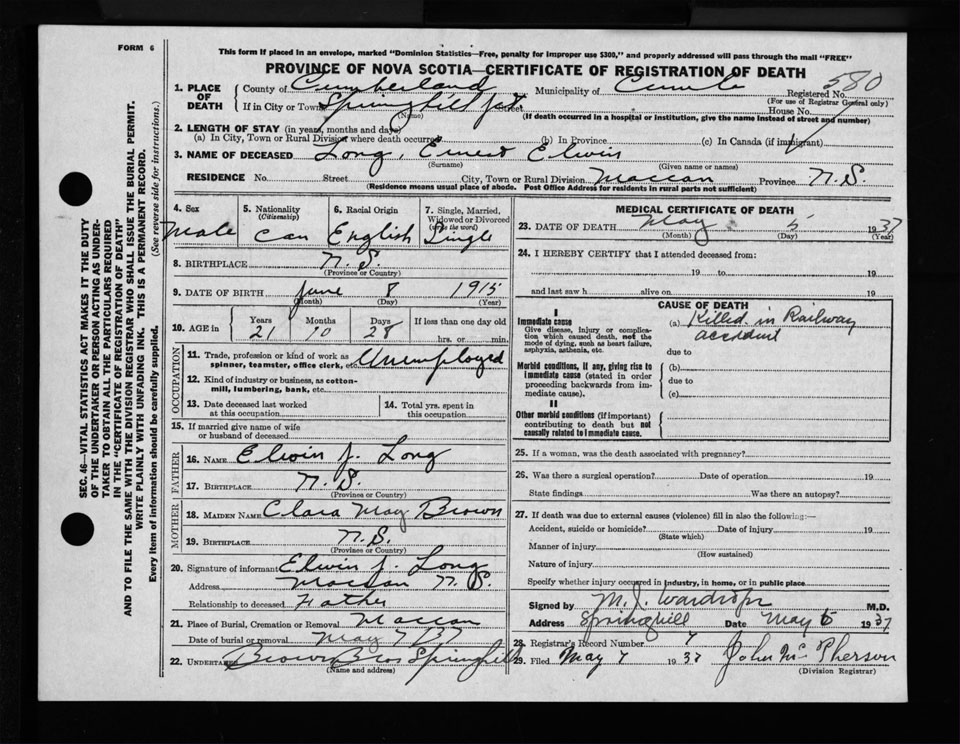 FORM 6
This form if placed in an envelope, marked "Dominion Statistics—Free, penalty for improper use $300," and properly addressed will pass through the mail "FREE"
PROVINCE OF NOVA SCOTIA—CERTIFICATE OF REGISTRATION OF DEATH
1. PLACE OF DEATH
County of Cumberland Municipality of Registered No. 580
(For use of Registrar General only)
If in City or Town Springhill Jct. Street House No.
(Name) (If death occurred in a hospital or institution, give the name instead of street and number)
2. LENGTH OF STAY (in years, months and days)
(a) In City, Town or Rural Division where death occurred (b) In Province (c) In Canada (if immigrant)
3. NAME OF DECEASED Long, Ernest Elwin
(Surname) (Given name or names)
RESIDENCE No. Street City, Town or Rural Division Maccan Province N.S.
(Residence means usual place of abode. Post Office Address for residents in rural parts not sufficient)
4. Sex Male
5. Nationality (Citizenship) Can
6. Racial Origin English
7. Single, Married, Widowed or Divorced (write the word) Single
8. BIRTHPLACE N.S.
(Province or Country)
9. DATE OF BIRTH June 8 1915
(Month) (Day) (Year)
10. AGE in Years 21 Months 10 Days 28 If less than one day old hrs. or min.
OCCUPATION
11. Trade, profession or kind of work as spinner, teamster, office clerk, etc. Unemployed
12. Kind of industry or business, as cotton-mill, lumbering, bank, etc.
13. Date deceased last worked at this occupation
14. Total yrs. spent in this occupation
15. If married give name of wife or husband of deceased
FATHER
16. NAME Elwin J. Long
17. BIRTHPLACE N.S.
(Province or Country)
MOTHER
18. MAIDEN NAME Clara May Brown
19. BIRTHPLACE N.S.
(Province or Country)
20. Signature of informant Elwin J. Long
Address Maccan N.S.
Relationship to deceased Father
21. Place of Burial, Cremation or Removal Maccan
Date of burial or removal May 7/37
22. UNDERTAKER Brown Bros Springhill
(Name and address)
MEDICAL CERTIFICATE OF DEATH
23. DATE OF DEATH May 5 1937
(Month) (Day) (Year)
24. I HEREBY CERTIFY that I attended deceased from:
19 to 19
and last saw h alive on 19
CAUSE OF DEATH
I
Immediate cause
Give disease, injury or complication which caused death, not the mode of dying, such as heart failure, asphyxia, asthenia, etc.
(a) Killed in Railway accident
due to
Morbid conditions, if any, giving rise to immediate cause (stated in order proceeding backwards from immediate cause).
(b)
due to
(c)
II
Other morbid conditions (if important) contributing to death but not causally related to immediate cause.
25. If a woman, was the death associated with pregnancy?
26. Was there a surgical operation? Date of operation 19
State findings Was there an autopsy?
27. If death was due to external causes (violence) fill in also the following:—
Accident, suicide or homicide? Date of injury 19
(State which)
Manner of injury
(How sustained)
Nature of injury
Specify whether injury occurred in industry, in home, or in public place
Signed by M. J. Wardrope M.D.
Address Springhill Date May 6 1937
28. Registrar's Record Number 7
29. Filed May 7 1937 John McPherson
(Division Registrar)
SEC. 46—VITAL STATISTICS ACT MAKES IT THE DUTY
OF THE UNDERTAKER OR PERSON ACTING AS UNDER-
TAKER TO OBTAIN ALL THE PARTICULARS REQUIRED
IN THE "CERTIFICATE OF REGISTRATION OF DEATH"
AND TO FILE THE SAME WITH THE DIVISION REGISTRAR WHO SHALL ISSUE THE BURIAL PERMIT.
WRITE PLAINLY WITH UNFADING INK. THIS IS A PERMANENT RECORD.
Every item of information should be carefully supplied. (See reverse side for instructions.)